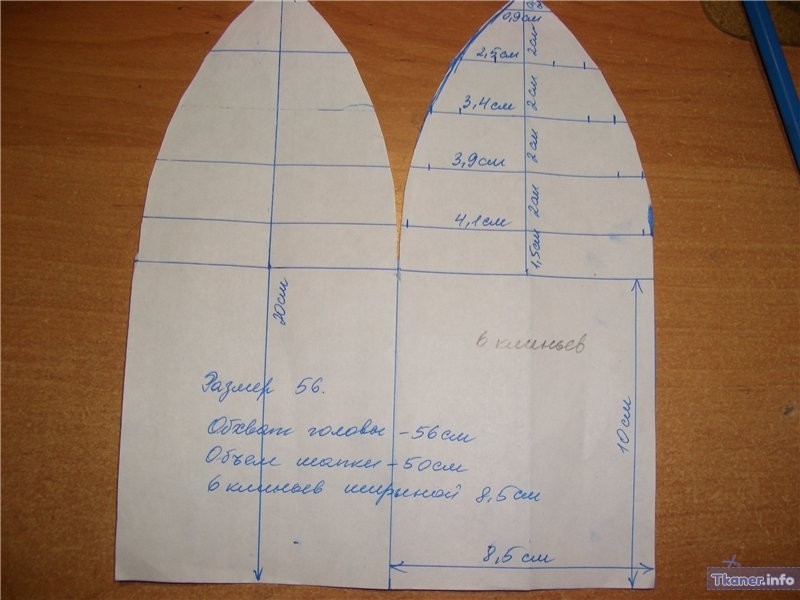 0,9см
2,5см
2см
3,4см
2см
3,9см
2см
4,1см
2см
1,5см
20см
6 клиньев
Размер 56.
Обхват головы - 56см
Объем шапки - 50см
6 клиньев шириной 8,5см
10см
8,5см
Tkaner.info